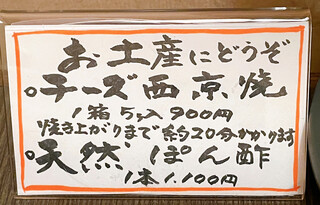 お土産にどうぞ
。チーズ西京焼
1箱5ヶ入900円
焼き上がりまで約20分かかります
。天然ぽん酢
1本1.100円